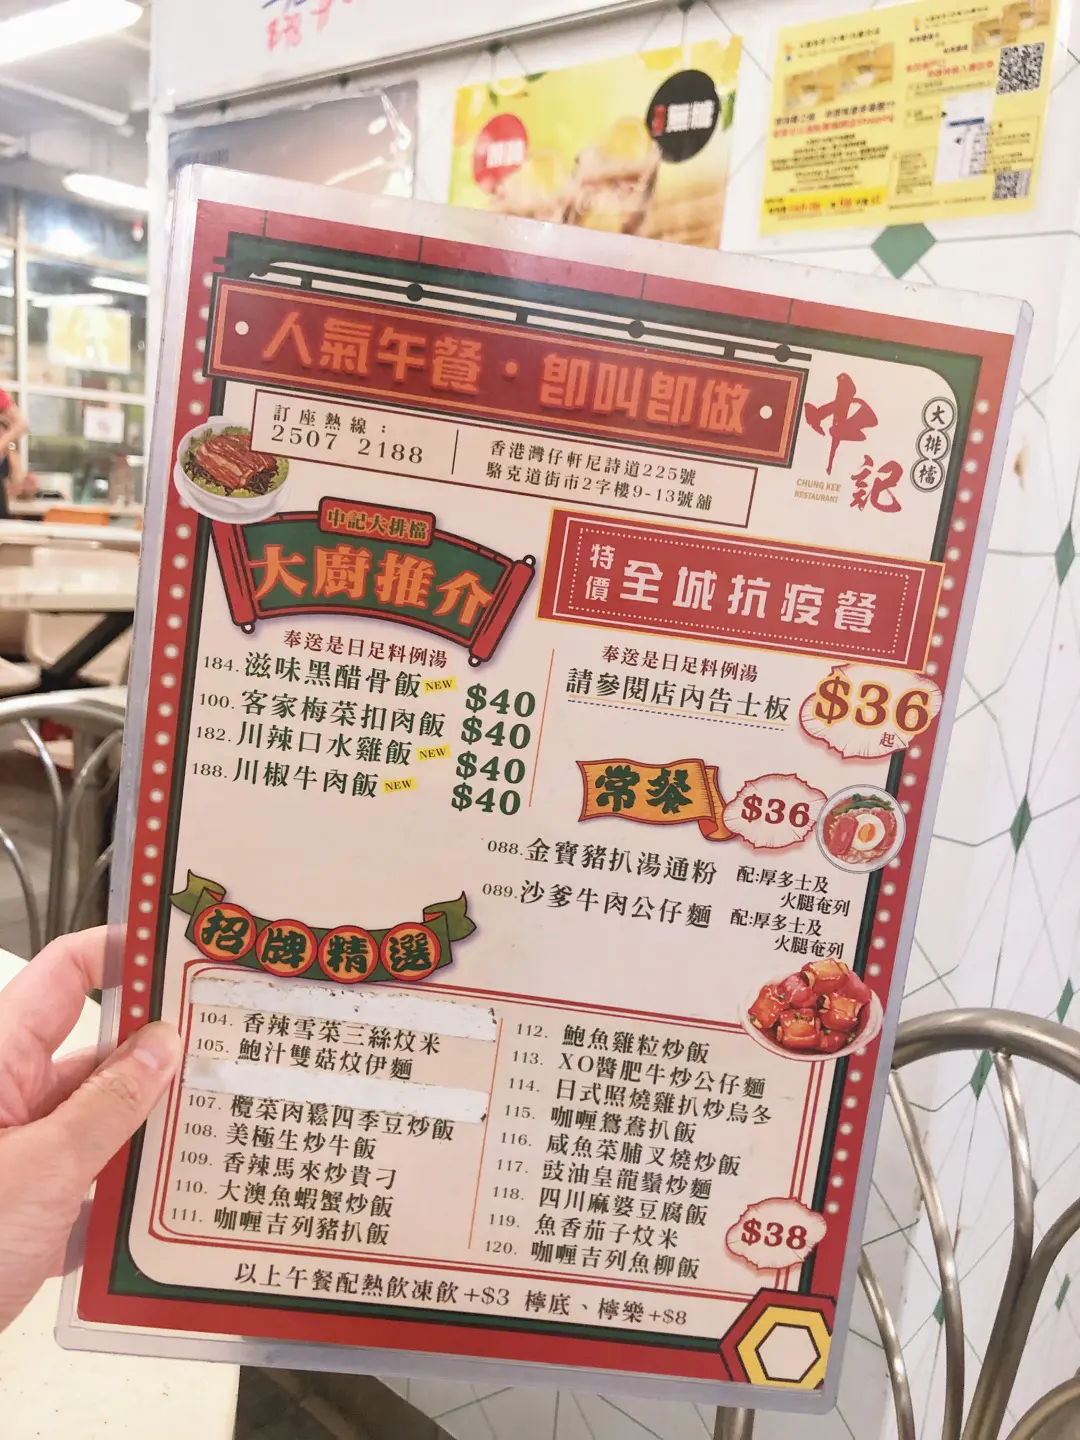 人氣午餐·即叫即做
訂座熱線：
2507 2188
香港灣仔軒尼詩道225號
駱克道街市2字樓9-13號舖
中記
大排檔
CHUNG KEE
RESTAURANT
中記大排檔
大廚推介
奉送是日足料例湯
184.滋味黑醋骨飯 NEW $40
100.客家梅菜扣肉飯 $40
182.川辣口水雞飯 NEW $40
188.川椒牛肉飯 NEW $40
特價 全城抗疫餐
奉送是日足料例湯
請參閱店內告士板 $36起
常餐 $36
088.金寶豬扒湯通粉 配:厚多士及
火腿奄列
089.沙爹牛肉公仔麵 配:厚多士及
火腿奄列
招牌精選
104. 香辣雪菜三絲炆米
105. 鮑汁雙菇炆伊麵
107. 欖菜肉鬆四季豆炒飯
108. 美極生炒牛飯
109. 香辣馬來炒貴刁
110. 大澳魚蝦蟹炒飯
111. 咖喱吉列豬扒飯
112. 鮑魚雞粒炒飯
113. XO醬肥牛炒公仔麵
114. 日式照燒雞扒炒烏冬
115. 咖喱鴛鴦扒飯
116. 咸魚菜脯叉燒炒飯
117. 豉油皇龍鬚炒麵
118. 四川麻婆豆腐飯
119. 魚香茄子炆米
120. 咖喱吉列魚柳飯
$38
以上午餐配熱飲凍飲+$3 檸底、檸樂+$8